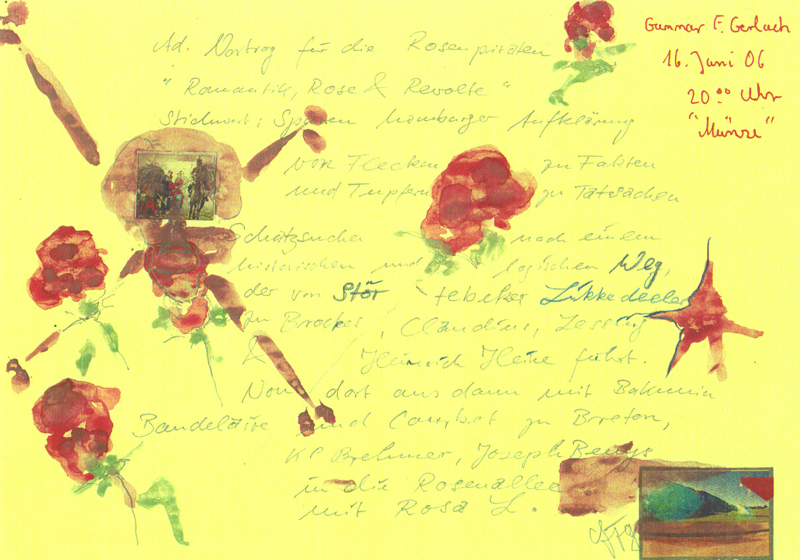 Ad. Vortrag für die Rosenpiraten
"Romantik, Rose & Revolte"
Stichwort: Spuren hamburger Aufklärung
von Flecken zu Fakten
und Tupfern zu Tatsachen
Schatzsuche nach einem
historischen und logischen Weg,
der von Störtebeker Likkedeeler
zu Brockes, Claudius, Lessing
& Heinrich Heine führt.
Von dort aus dann mit Bakunin
Baudelaire und Courbet zu Breton,
KP Brehmer, Joseph Beuys
in die Rosenallee
mit Rosa L.
Gunnar F. Gerlach
16. Juni 06
20 00 Uhr
"Münze"